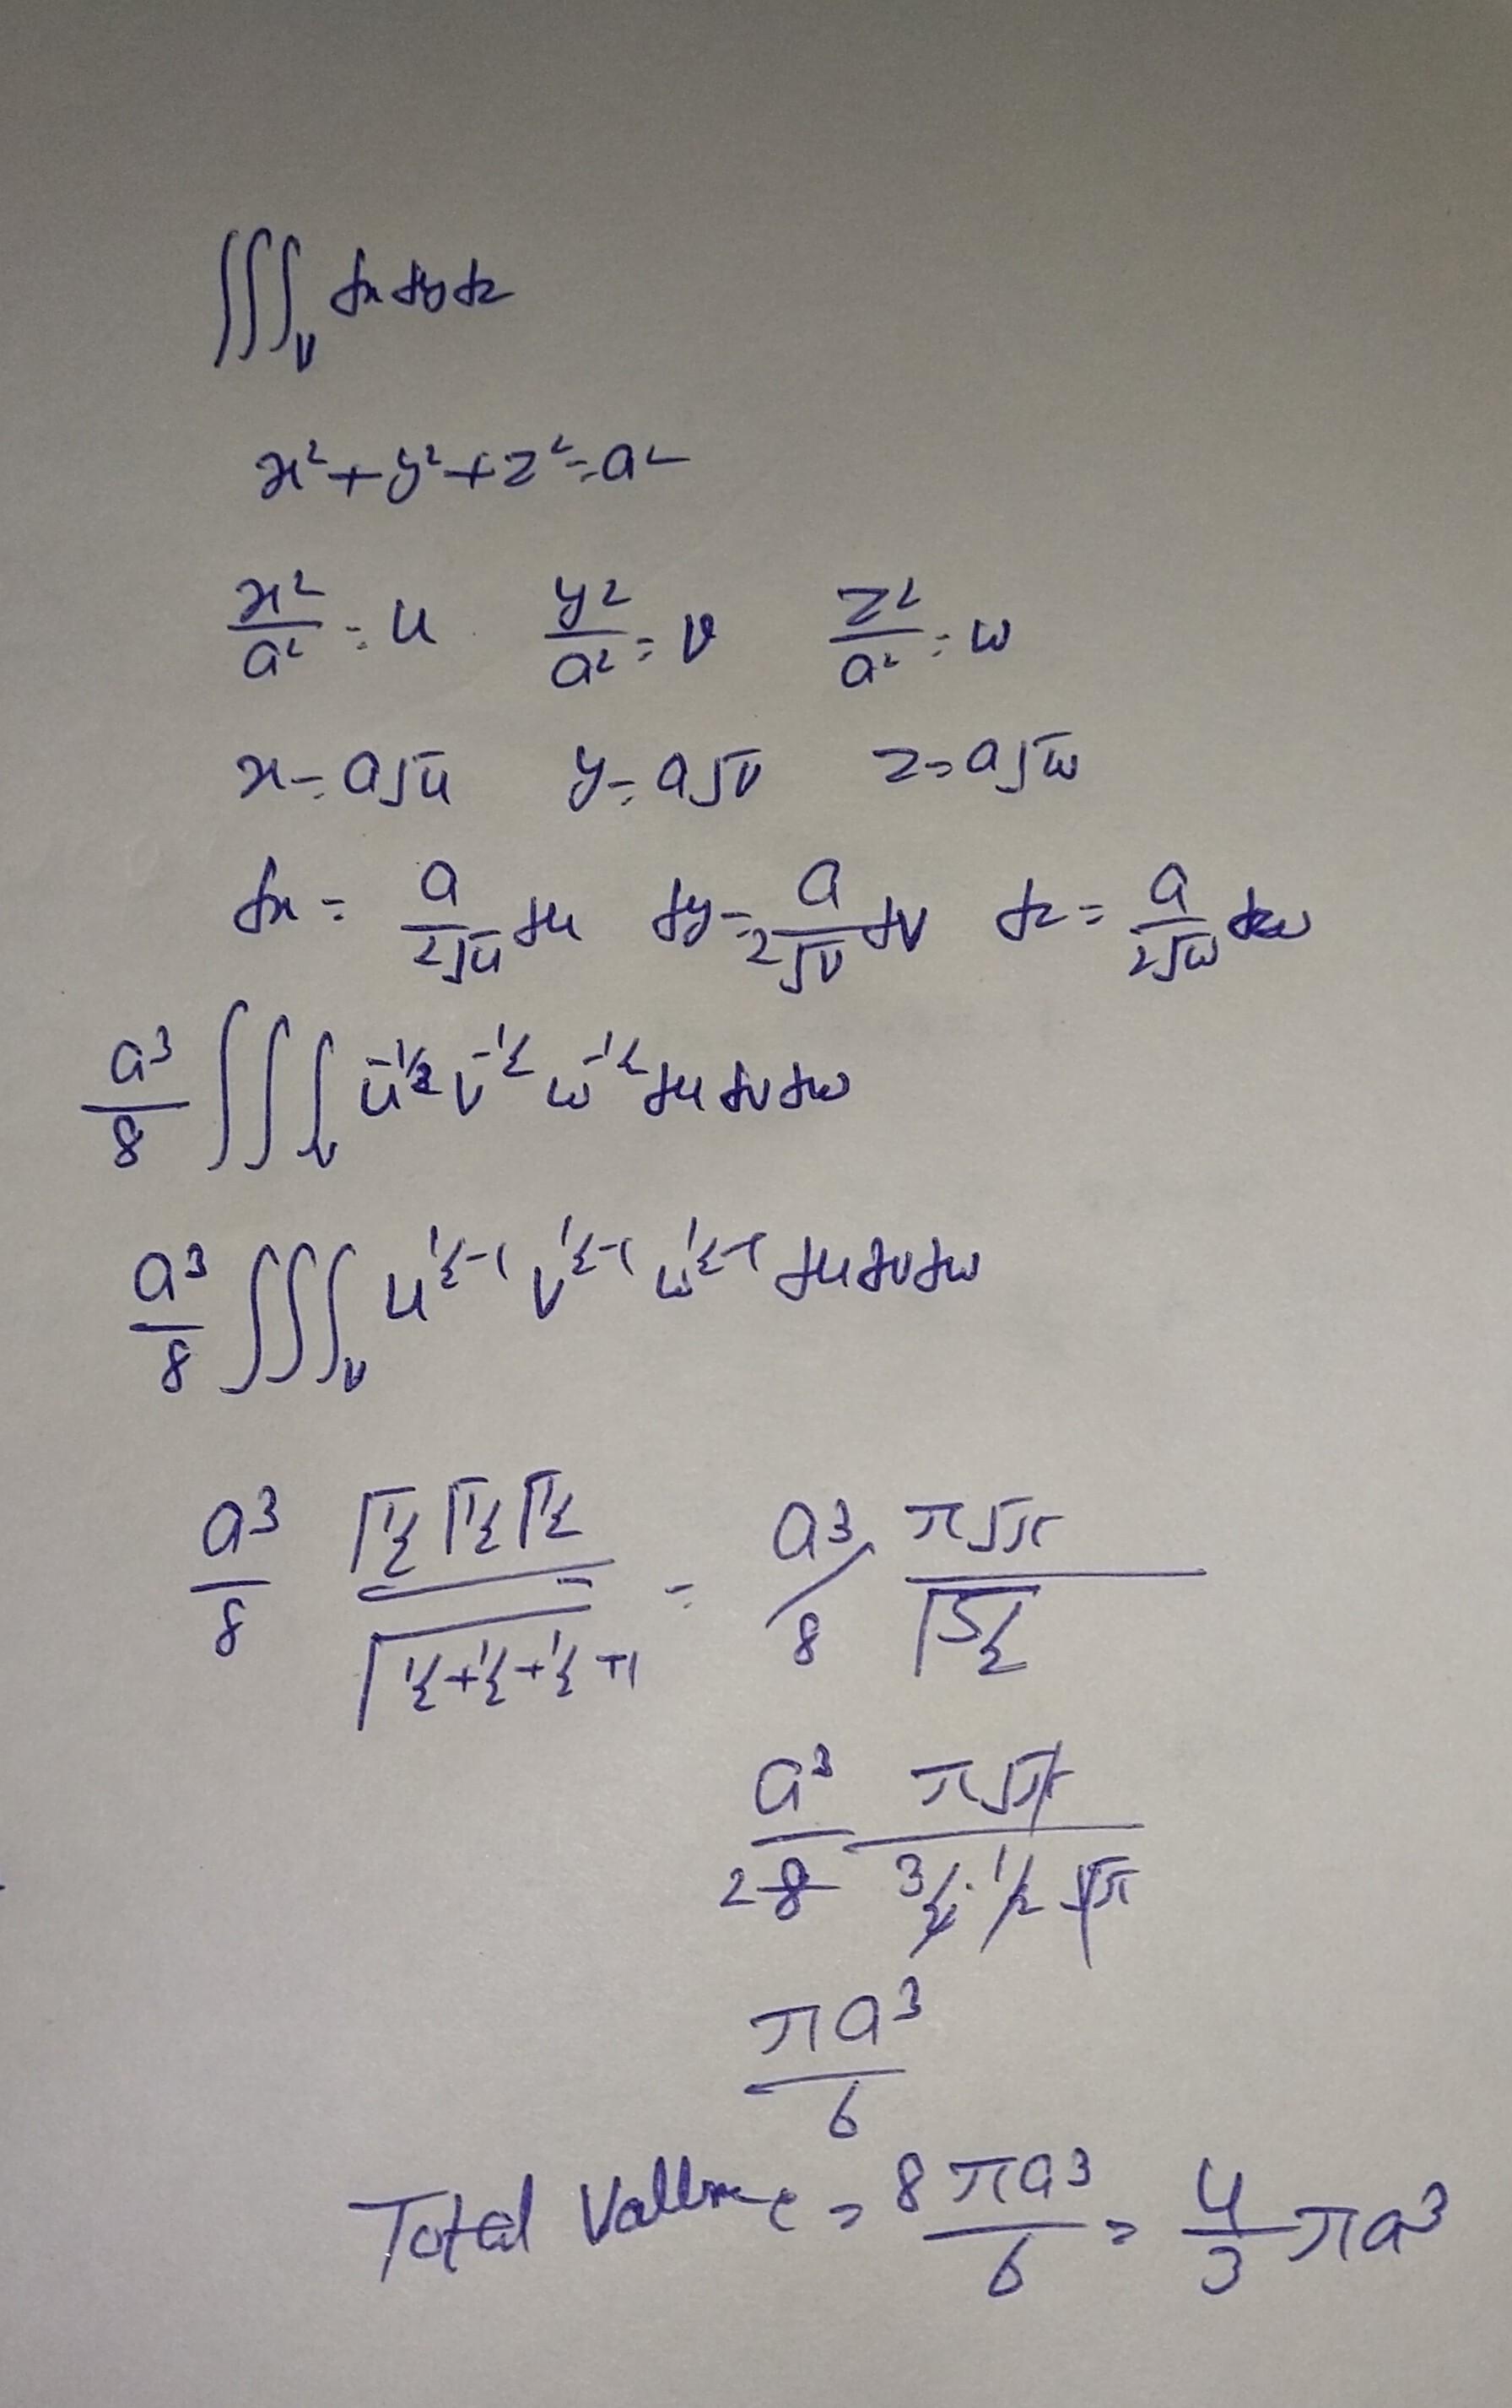 ∭_V dx dy dz
x² + y² + z² = a²
x²/a² = u  y²/a² = v  z²/a² = w
x = a√u  y = a√v  z = a√w
dx = a/(2√u) du  dy = a/(2√v) dv  dz = a/(2√w) dw
a³/8 ∭_V u^(-1/2) v^(-1/2) w^(-1/2) du dv dw
a³/8 ∭_V u^(1/2-1) v^(1/2-1) w^(1/2-1) du dv dw
a³/8 (Γ1/2 Γ1/2 Γ1/2)/(Γ1/2+1/2+1/2+1) = a³/8 (π√π)/(Γ5/2)
a³/(2 8) (π√π)/(3/2 · 1/2 √π)
πa³/6
Total Vallume = 8πa³/6 = 4/3 πa³